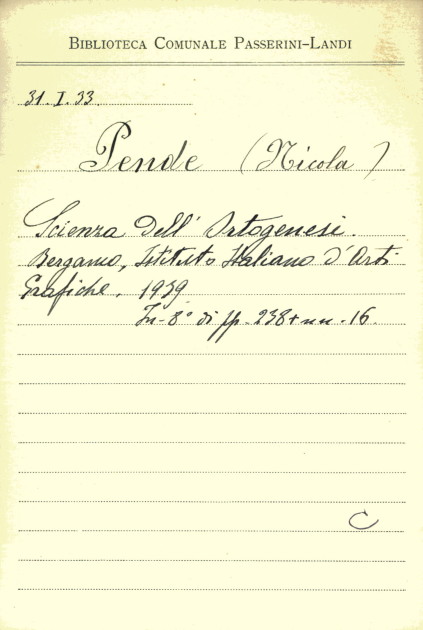 BIBLIOTECA COMUNALE PASSERINI-LANDI
31. I. 33.
Pende (Nicola)
Scienza dell' Ortogenesi.
Bergamo, Istituto Italiano d'Arti
Grafiche. 1939
In-8° di pp. 238+nn. 16.
C